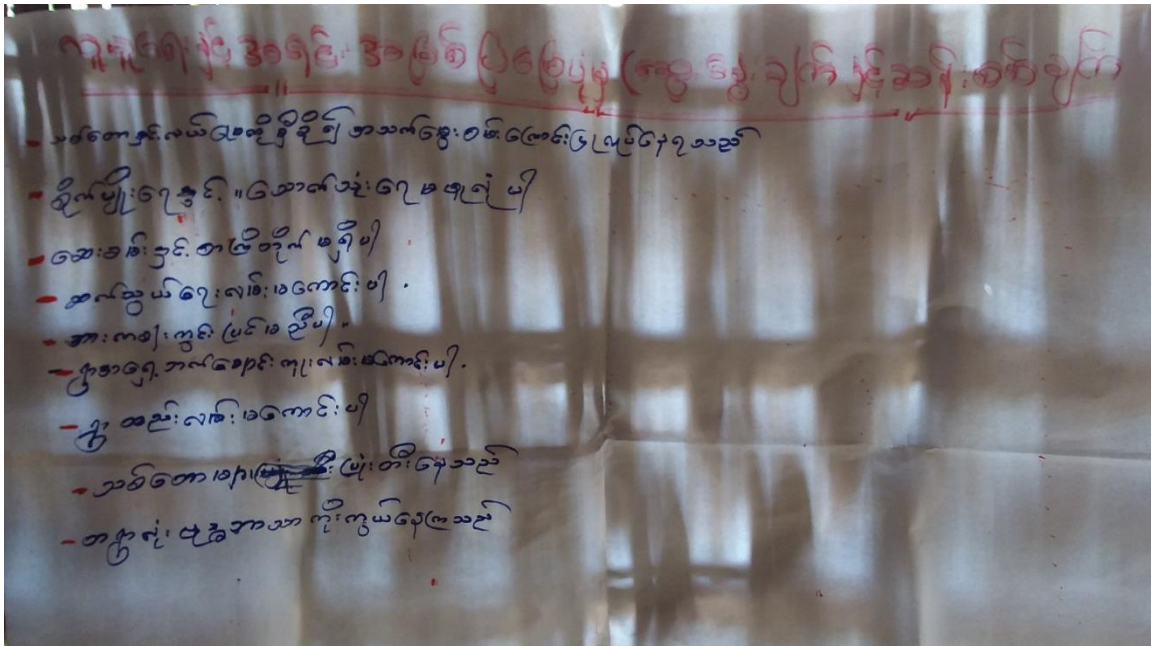 လူမှုရေးနှင့် အရင်းအမြစ်ပြမြေပုံမှ (ဆွေးနွေးချက်နှင့်ဆန်းစစ်ချက်
- သစ်တောနှင့်လယ်မြေကိုမှီခို၍ အသက်မွေးဝမ်းကြောင်းပြုလုပ်နေရသည်
- စိုက်ပျိုးရေနှင့် သောက်သုံးရေ မဖူလုံပါ
- ဆေးခန်းနှင့် စာကြည့်တိုက် မရှိပါ
- ဆက်သွယ်ရေးလမ်းမကောင်းပါ .
- အားကစားကွင်း ပြင်မညီပါ။
- ရွာအရှေ့ဘက်ချောင်းကူးလမ်းမကောင်းပါ .
- ရွာထည်းလမ်းမကောင်းပါ
- သစ်တောများ ပြုံးတီးနေသည်
- တရွာလုံး ဗုဒ္ဓဘာသာ ကိုးကွယ်နေကြသည်